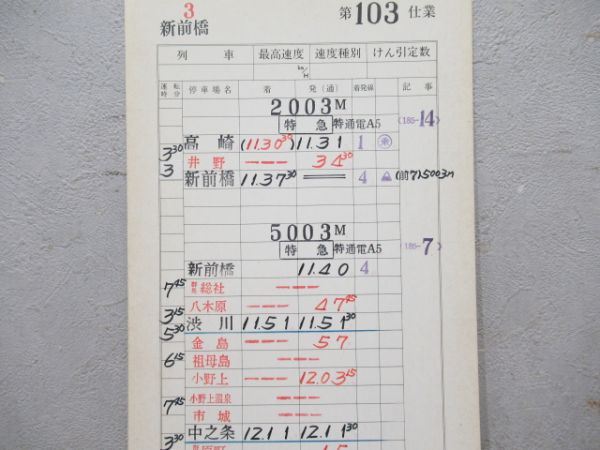 3
新前橋 第103仕業
列車 最高速度 速度種別 けん引定数
km/H
運転時分 停車場名 着 発(通) 着発線 記事
2003M
特急 特通電A5 (185-14)
3 30 高崎 (11.30 30) 11.31 1
3 井野 --- 34 30
新前橋 11.37 30 = 4 (前7)5003M
5003M
特急 特通電A5 (185-7)
新前橋 11.40 4
7 45 群馬総社 ---
八木原 --- 47 45
3 15 渋川 11.51 11.51 30
5 30 金島 --- 57
祖母島 ---
6 15 小野上 --- 12.03 15
小野上温泉 ---
7 45 市城 ---
中之条 12.11 12.11 30
3 30